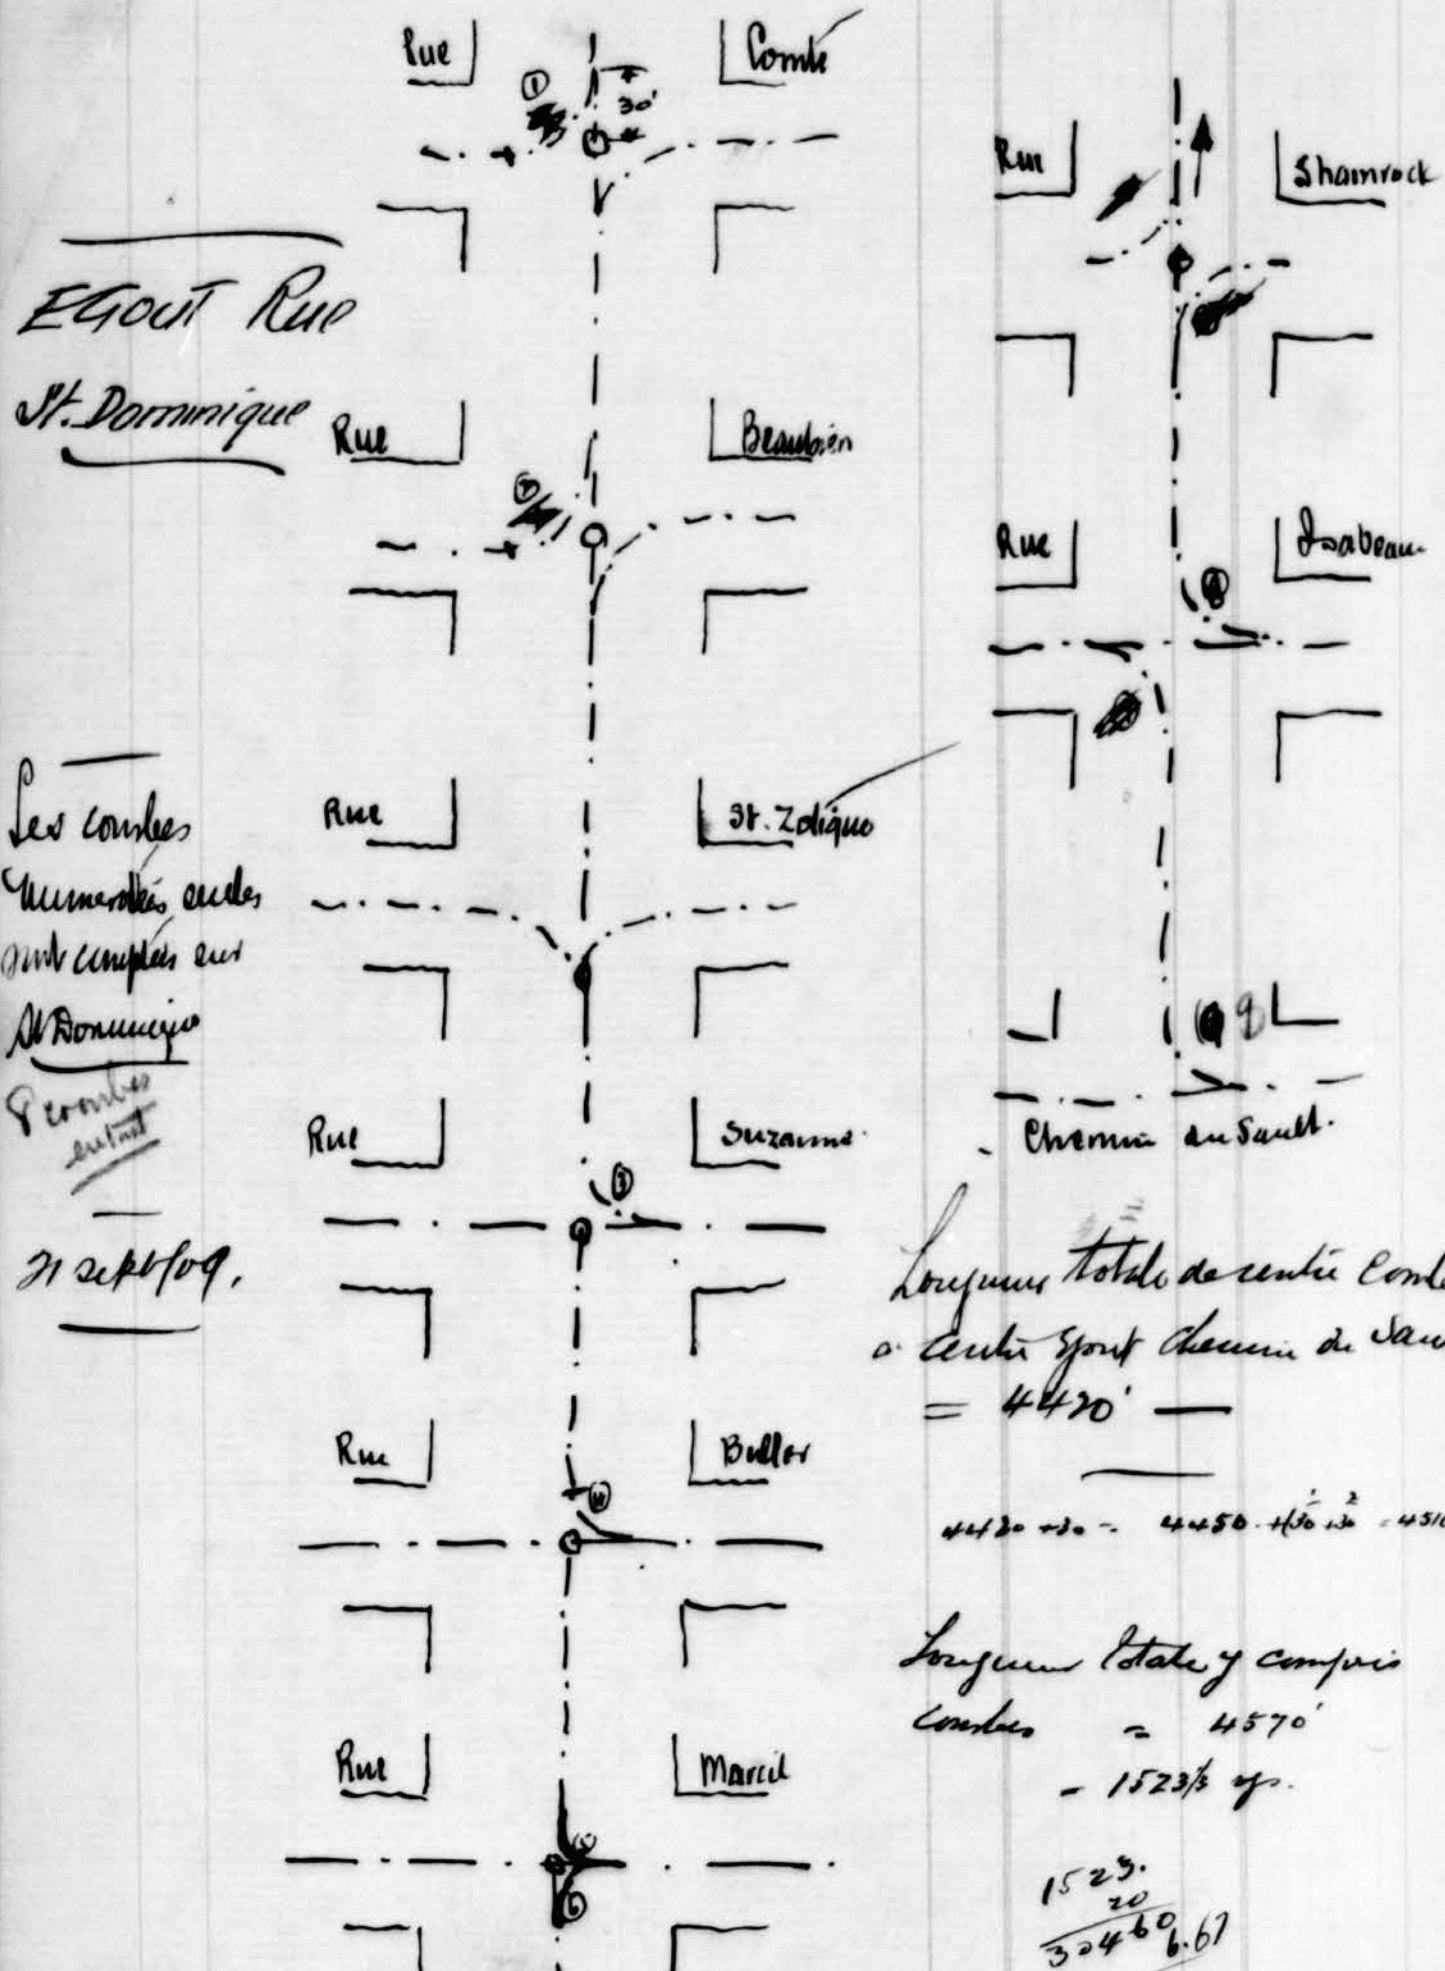 EGOUT Rue
St. Dominique
Les courbes
numerotées seules
sont comptées sur
St Dominique
8 courbes
en tout
21 sept/09.
Rue Comté
①
30'
Rue Beaubien
②
Rue St. Zotique
Rue Suzanne
③
Rue Buller
④
Rue Marcil
5
6
Rue Shamrock
Rue Isabeau
8
9
Chemin du Sault.
Longueur totale de centre Comté
a centre Egout Chemin du Sau
= 4420'
4420 + 30 = 4450 + (30 + 30 = 4510
1 2
Longueur totale y compris
courbes = 4570'
= 1523⅓ vgs.
1523.
20
30460
6.67